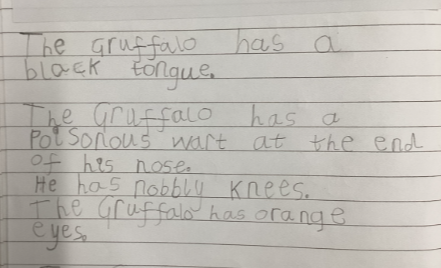 The Gruffalo has a
black tongue.
The Gruffalo has a
Poisonous wart at the end
of his nose.
He has nobbly knees.
The Gruffalo has orange
eyes.